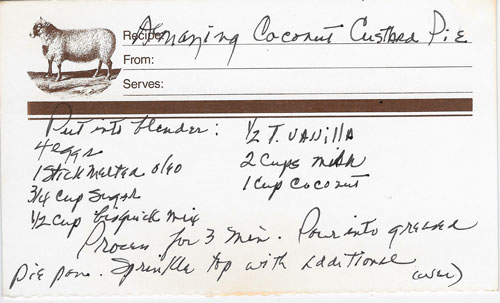 Recipe: Amazing Coconut Custard Pie
From:
Serves:
Put into blender:
4 eggs
1 stick melted oleo
3/4 cup sugar
1/2 cup bisquick mix
1/2 T. vanilla
2 cups milk
1 cup coconut
Process for 3 min. Pour into greased
pie pan. Sprinkle top with additional
(over)